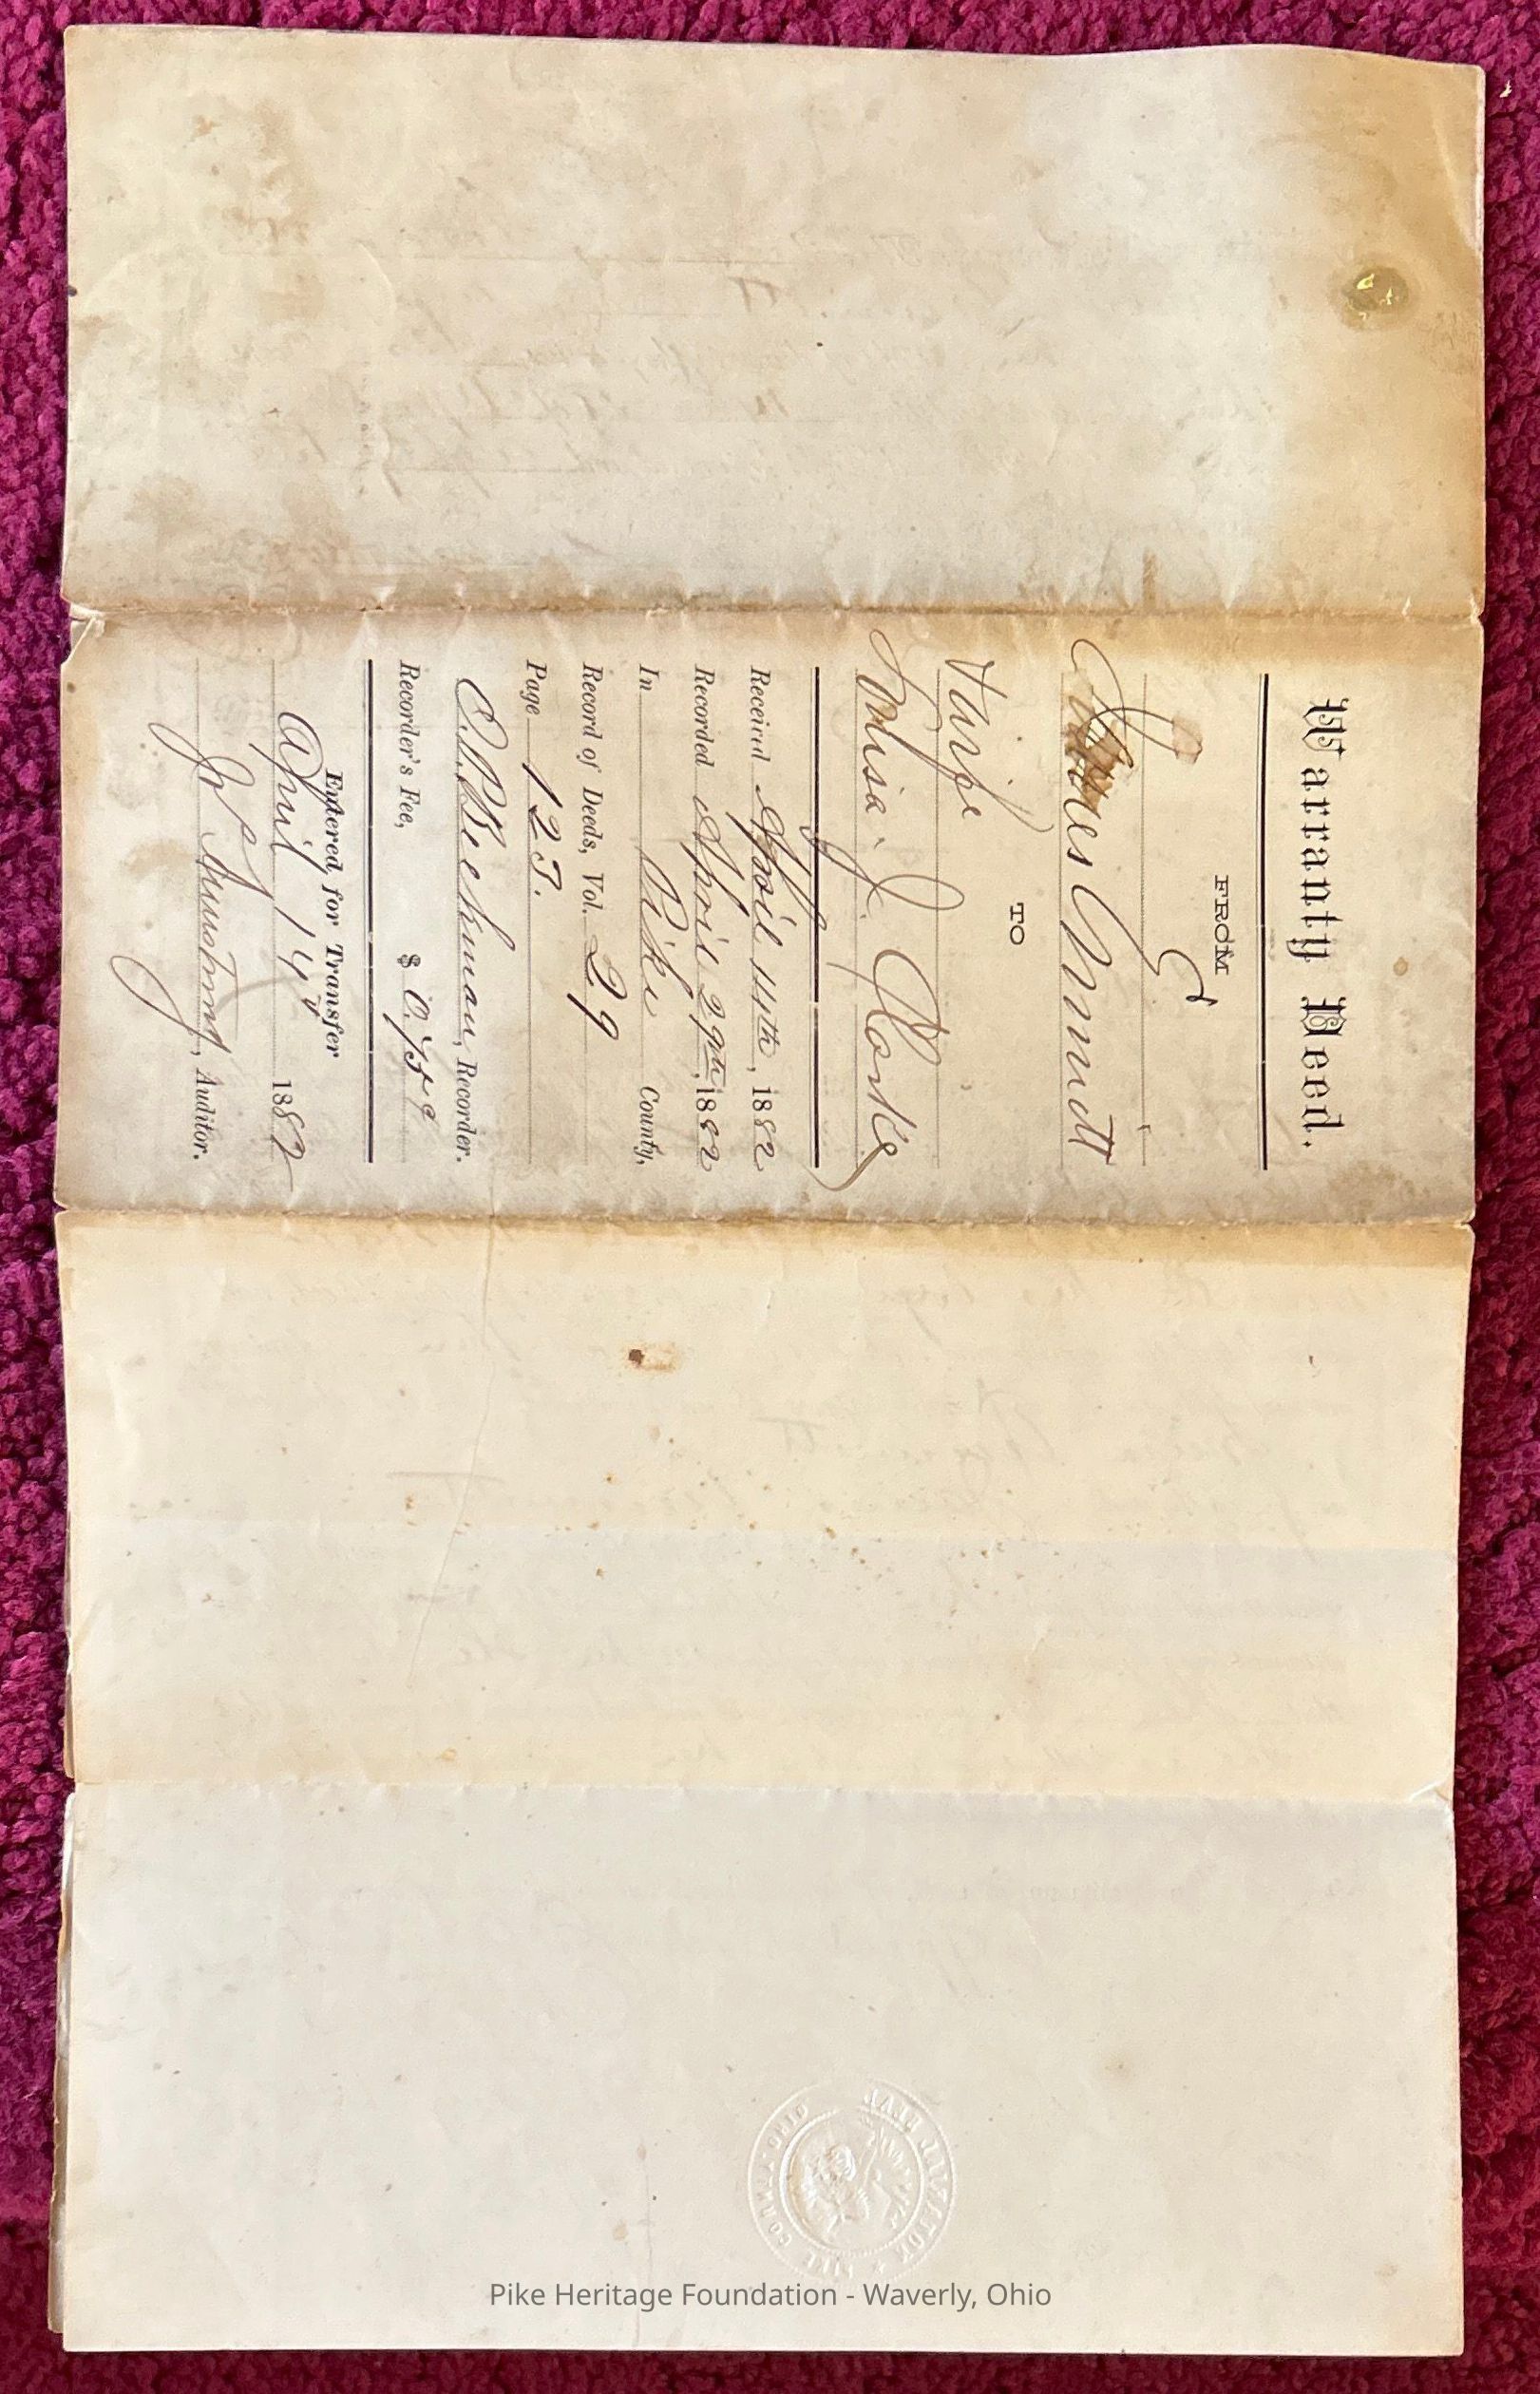 Warranty Deed.
FROM
James Emmitt &
Wife
TO
Louisa J. Clarke
Received April 14th, 1882
Recorded April 29th, 1882
In Pike County,
Record of Deeds, Vol. 29
Page 123.
Beekman, Recorder.
Recorder's Fee, $ 0.75
Entered for Transfer
April 14 1882
Armstrong, Auditor.
NOTARIAL SEAL ★ PIKE COUNTY OHIO
Pike Heritage Foundation - Waverly, Ohio